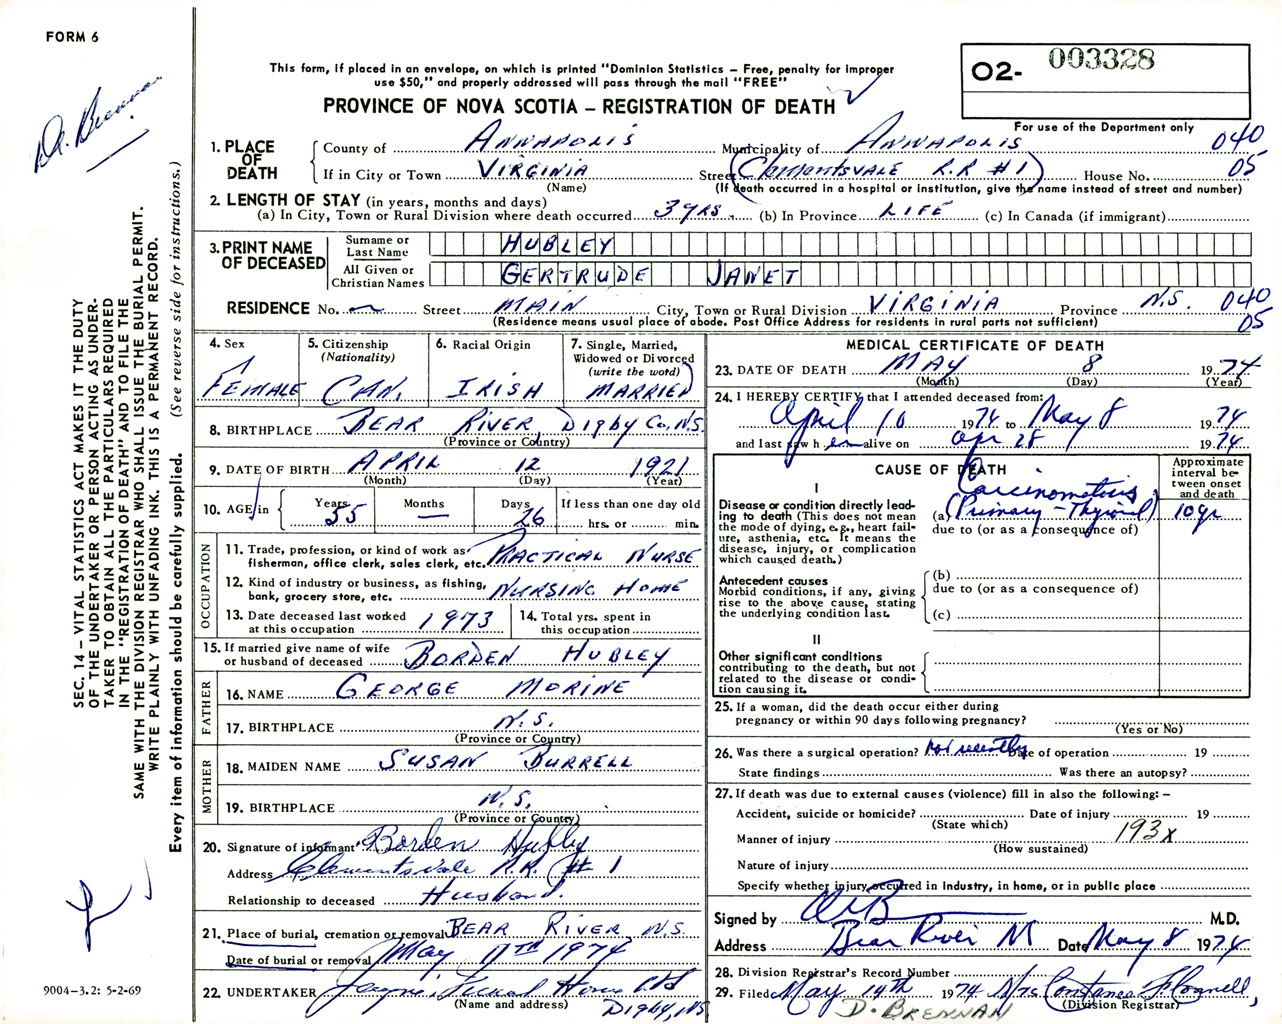 FORM 6
Dr. Brennan
This form, if placed in an envelope, on which is printed "Dominion Statistics – Free, penalty for improper
use $50," and properly addressed will pass through the mail "FREE"
PROVINCE OF NOVA SCOTIA – REGISTRATION OF DEATH
O2- 003328
For use of the Department only
040
05
1. PLACE OF DEATH
County of ANNAPOLIS Municipality of ANNAPOLIS
If in City or Town VIRGINIA Street Clementsvale R.R #1 House No.
(Name) (If death occurred in a hospital or institution, give the name instead of street and number)
2. LENGTH OF STAY (in years, months and days)
(a) In City, Town or Rural Division where death occurred 3 yrs. (b) In Province LIFE (c) In Canada (if immigrant)
3. PRINT NAME OF DECEASED
Surname or Last Name HUBLEY
All Given or Christian Names GERTRUDE JANET
RESIDENCE No. Street MAIN City, Town or Rural Division VIRGINIA Province N.S. 040
(Residence means usual place of abode. Post Office Address for residents in rural parts not sufficient) 05
4. Sex FEMALE
5. Citizenship (Nationality) CAN.
6. Racial Origin IRISH
7. Single, Married, Widowed or Divorced (write the word) MARRIED
8. BIRTHPLACE BEAR RIVER, Digby Co, N.S.
(Province or Country)
9. DATE OF BIRTH APRIL 12 1921
(Month) (Day) (Year)
10. AGE in Years 55 Months — Days 26 If less than one day old hrs. or min.
OCCUPATION
11. Trade, profession, or kind of work as fisherman, office clerk, sales clerk, etc. PRACTICAL NURSE
12. Kind of industry or business, as fishing, bank, grocery store, etc. NURSING HOME
13. Date deceased last worked at this occupation 1973
14. Total yrs. spent in this occupation
15. If married give name of wife or husband of deceased BORDEN HUBLEY
FATHER
16. NAME GEORGE MORINE
17. BIRTHPLACE N.S.
(Province or Country)
MOTHER
18. MAIDEN NAME SUSAN BURRELL
19. BIRTHPLACE N.S.
(Province or Country)
20. Signature of informant Borden Hubley
Address Clementsvale R.R. #1
Relationship to deceased Husband.
21. Place of burial, cremation or removal BEAR RIVER N.S.
Date of burial or removal May 11TH 1974
22. UNDERTAKER Jayne's Funeral Home Ltd
(Name and address) Digby, NS
MEDICAL CERTIFICATE OF DEATH
23. DATE OF DEATH MAY 8 1974
(Month) (Day) (Year)
24. I HEREBY CERTIFY that I attended deceased from:
April 10 1974 to May 8 1974
and last saw her alive on Apr 28 1974
CAUSE OF DEATH
Approximate interval between onset and death
I
Disease or condition directly leading to death (This does not mean the mode of dying, e.g., heart failure, asthenia, etc. It means the disease, injury, or complication which caused death.)
(a) Carcinomatosis (Primary - Thyroid) 10 yr
due to (or as a consequence of)
Antecedent causes
Morbid conditions, if any, giving rise to the above cause, stating the underlying condition last.
(b)
due to (or as a consequence of)
(c)
II
Other significant conditions
contributing to the death, but not related to the disease or condition causing it.
25. If a woman, did the death occur either during pregnancy or within 90 days following pregnancy?
(Yes or No)
26. Was there a surgical operation? Not recently Date of operation 19
State findings Was there an autopsy?
27. If death was due to external causes (violence) fill in also the following: –
Accident, suicide or homicide? Date of injury 19
(State which) 193x
Manner of injury
(How sustained)
Nature of injury
Specify whether injury occurred in Industry, in home, or in public place
Signed by M.D.
Address Bear River NS Date May 8 1974
28. Division Registrar's Record Number
29. Filed May 14th 1974 Mrs Constance
(Division Registrar)
D. BRENNAN
SEC. 14 – VITAL STATISTICS ACT MAKES IT THE DUTY
OF THE UNDERTAKER OR PERSON ACTING AS UNDER-
TAKER TO OBTAIN ALL THE PARTICULARS REQUIRED
IN THE "REGISTRATION OF DEATH" AND TO FILE THE
SAME WITH THE DIVISION REGISTRAR WHO SHALL ISSUE THE BURIAL PERMIT.
WRITE PLAINLY WITH UNFADING INK. THIS IS A PERMANENT RECORD.
Every item of information should be carefully supplied. (See reverse side for instructions.)
9004-3.2: 5-2-69